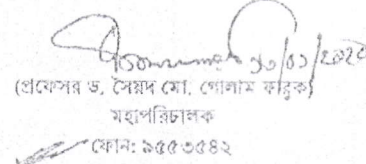 ১৬/০১/২০২০
(প্রফেসর ড. সৈয়দ মো. গোলাম ফারুক)
মহাপরিচালক
ফোন: ৯৫৫৩৫৪২